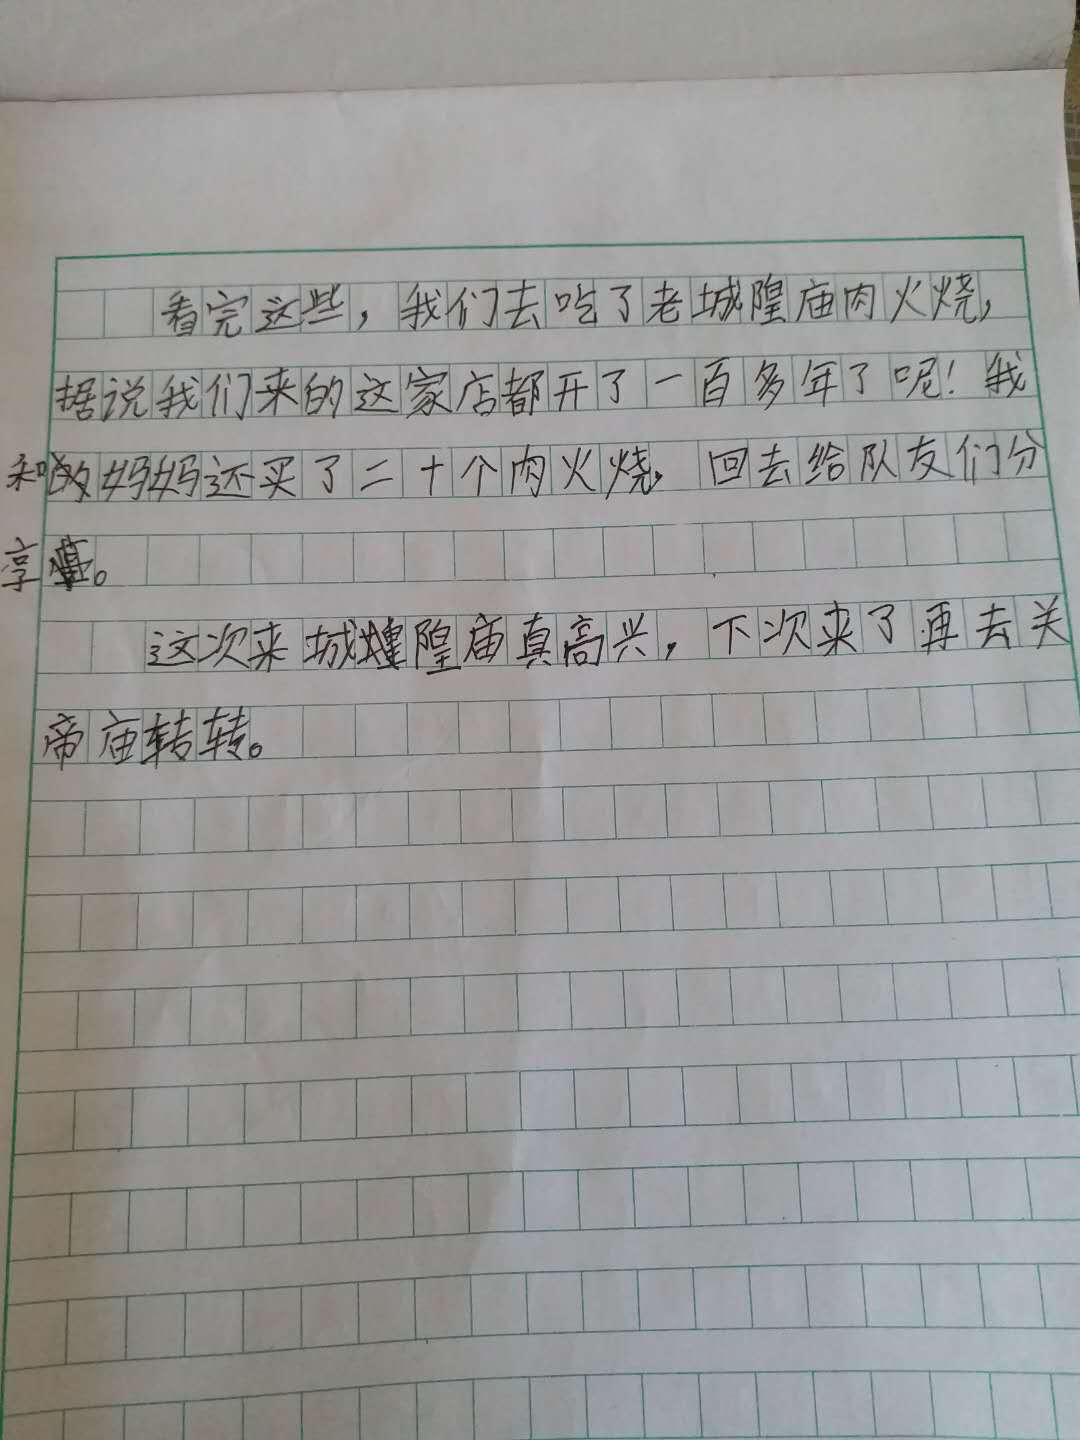 看完这些，我们去吃了老城隍庙肉火烧，
据说我们来的这家店都开了一百多年了呢！我
和妈妈还买了二十个肉火烧，回去给队友们分
享。
这次来城隍庙真高兴，下次来了再去关
帝庙转转。